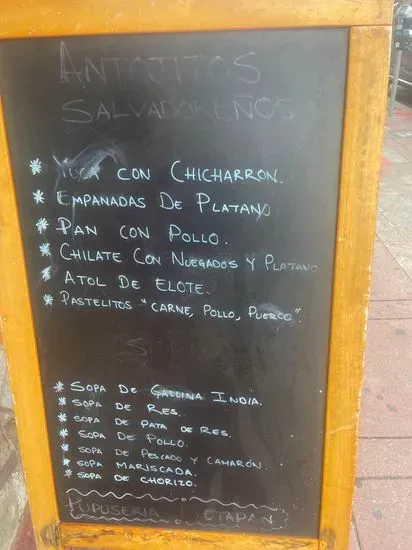 ANTOJITOS
SALVADOREÑOS
* YUCA CON CHICHARRON.
* EMPANADAS DE PLATANO
* PAN CON POLLO.
* CHILATE CON NUEGADOS Y PLATANO
* ATOL DE ELOTE.
* PASTELITOS "CARNE, POLLO, PUERCO".
* SOPA DE GALLINA INDIA.
* SOPA DE RES.
* SOPA DE PATA DE RES.
* SOPA DE POLLO.
* SOPA DE PESCADO Y CAMARÓN.
* SOPA MARISCADA.
* SOPA DE CHORIZO.
PUPUSERIA